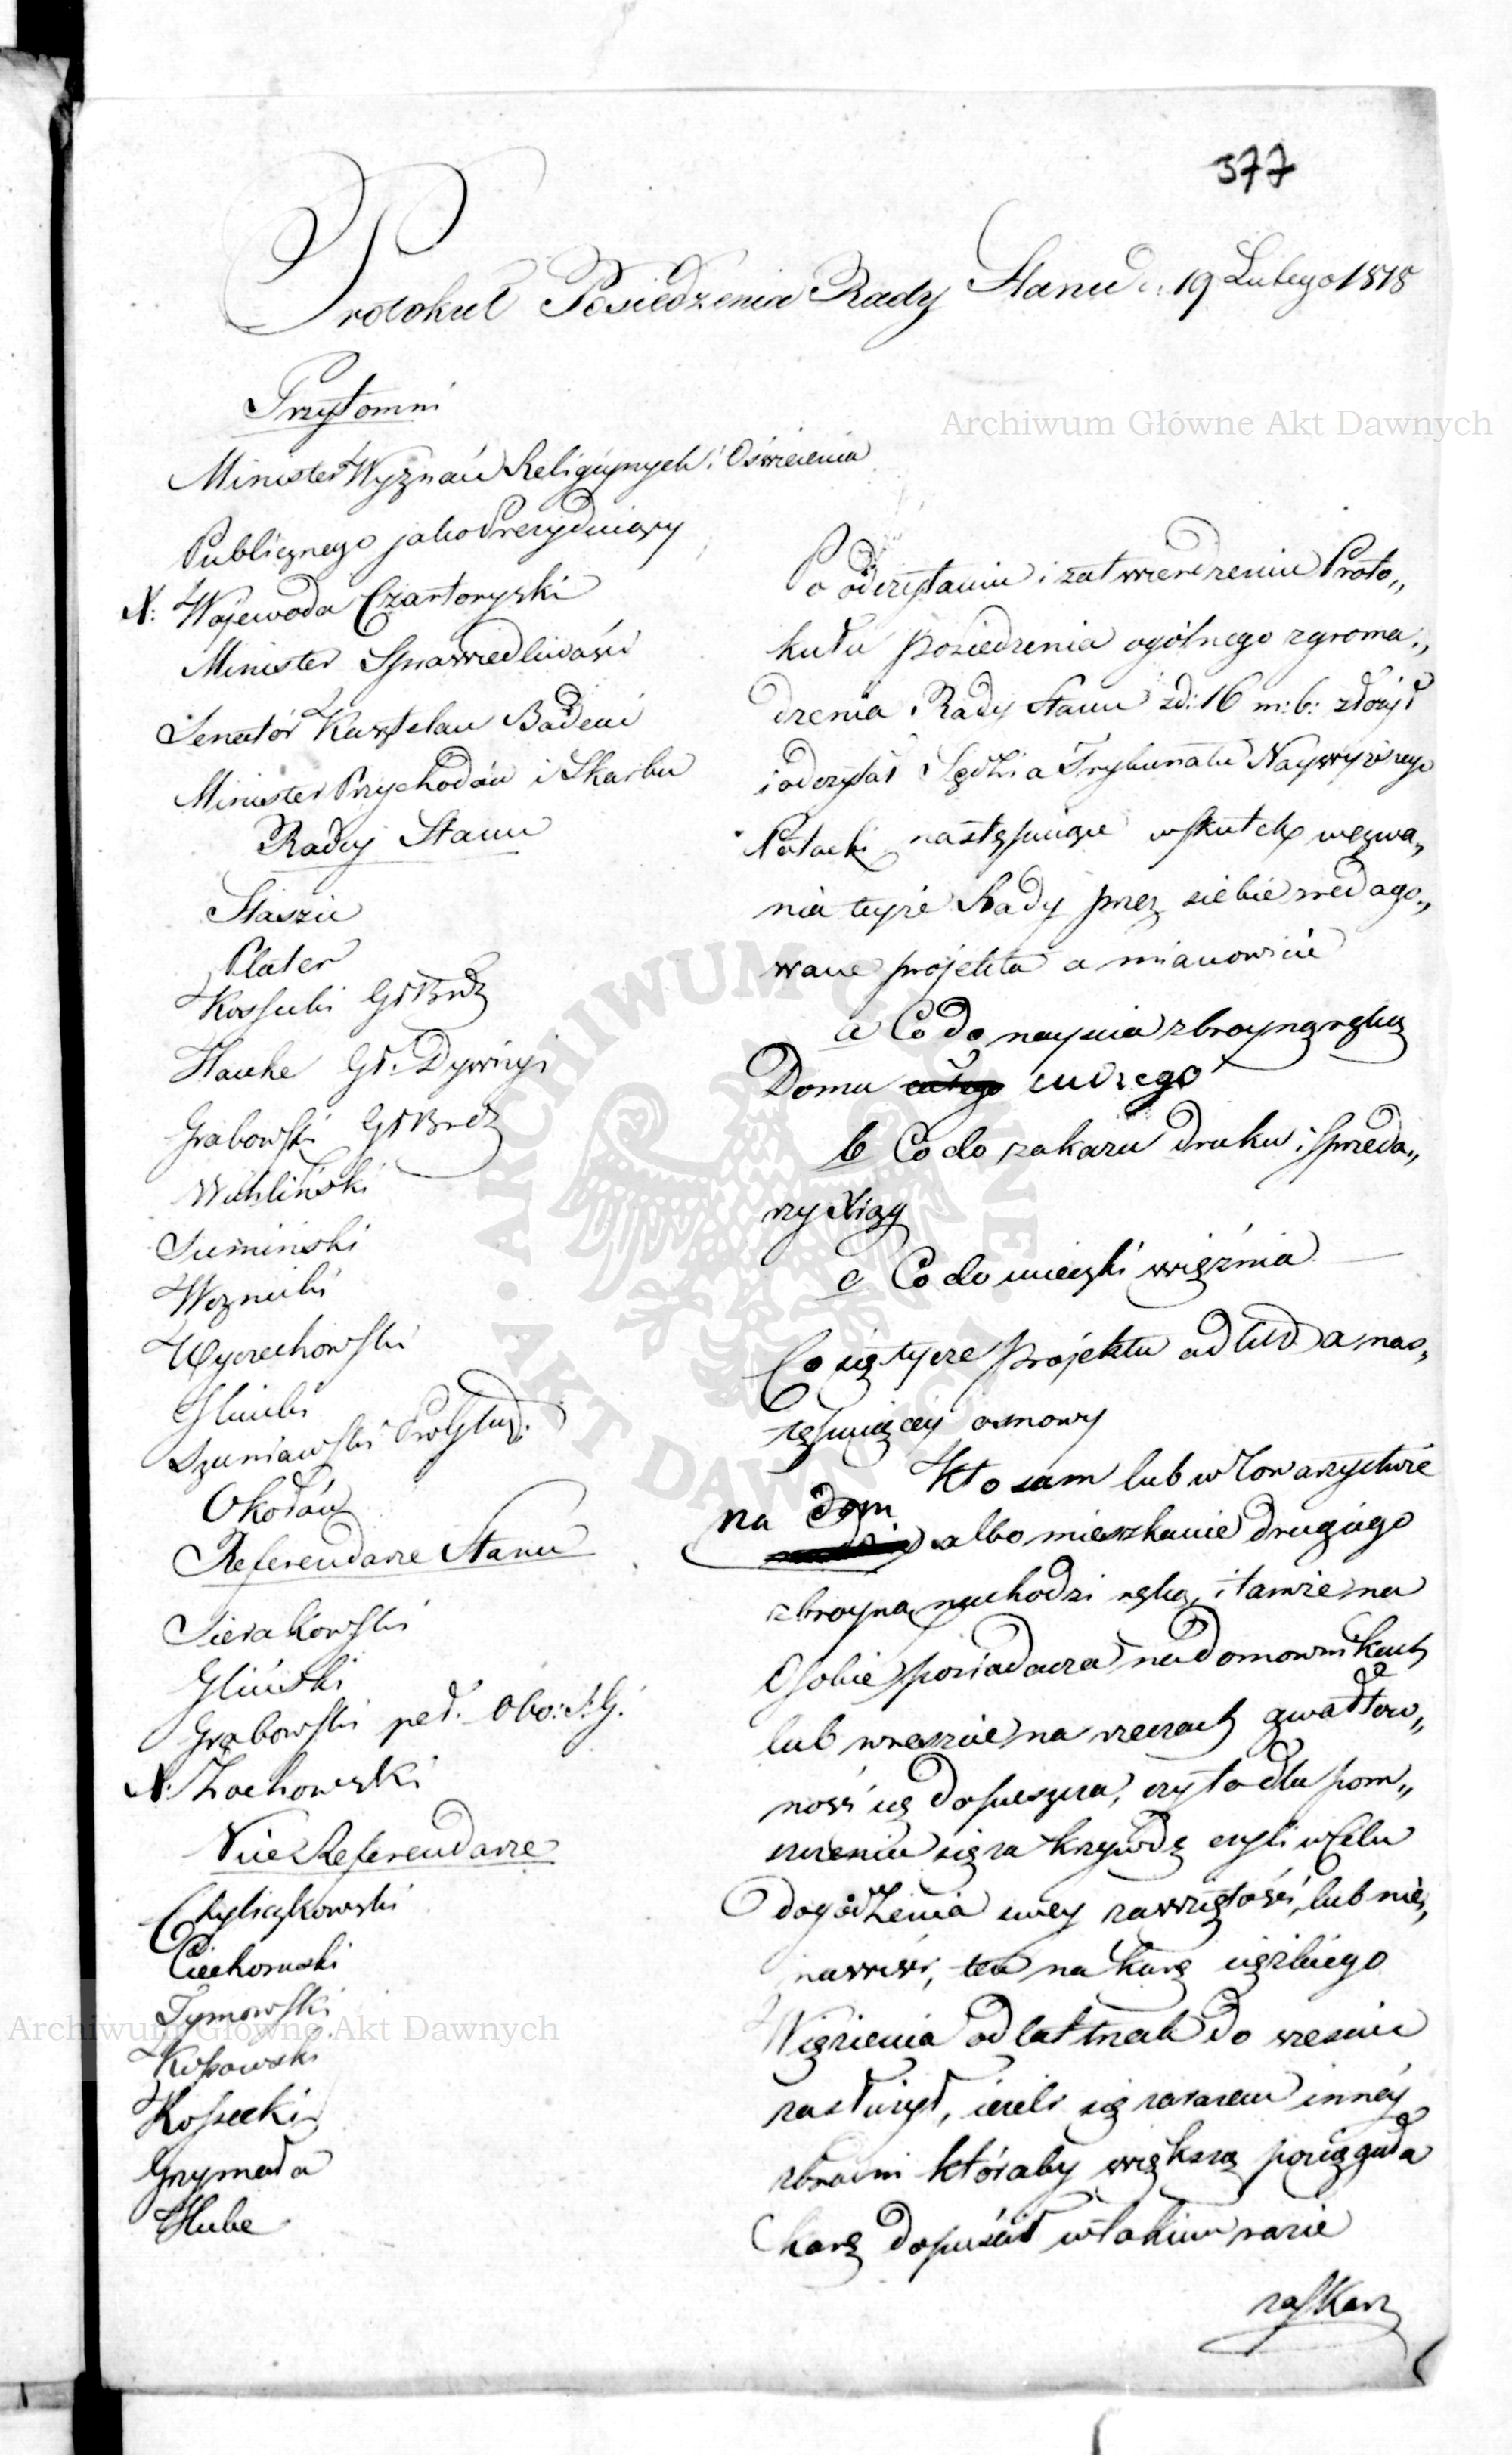 377
Protokuł Posiedzenia Rady Stanu d: 19 Lutego 1818
Przytomni
Minister Wyznań Religijnych i Oświecenia
Publicznego jako Prezydujący
N: Wojewoda Czartoryski
Minister Sprawiedliwości
Senator Kasztelan Badeni
Minister Przychodów i Skarbu
Radcy Stanu
Staszic
Plater
Kossecki Gł Bryd
Hauke Gł. Dywizyi
Grabowski Gł Bryd
Wichliński
Sumiński
Woznicki
Wyczechowski
Gliński
Szaniawski
Okołów
Referendarze Stanu
Sierakowski
Gliński
Grabowski peł. Obo: S: G:
N: Żochowski
Vice Referendarze
Chyliczkowski
Ciechomski
Tymowski
Kossowski
Kossecki
Grzymała
Hube
Po odczytaniu i zatwierdzeniu Proto„
kułu posiedzenia ogólnego zgroma„
dzenia Rady Stanu z d: 16 m: b: złożył
i odczytał Sędzia Trybunału Naywyższego
Potocki następujące w skutek wezwa„
nia teyże Rady przez siebie zredago„
wane projekta a mianowicie
a Co do naycia zbroyną ręką
Domu całego cudzego
b Co do zakazu druku i sprzeda„
ży Xiąg
c Co do ucieczki więźnia
Co się tycze Projektu ad lit. a nas„
tępuiącey osnowy
Kto sam lub w Towarzystwie
na dom albo mieszkanie drugiego
zbroyną nachodzi ręką, i tamże na
Osobie posiadacza na domownikach
lub wreszcie na rzeczach gwałtow„
ności się dopuszcza, czy to dla pom„
szczenia się za krzywdę czyli w Celu
dogodzenia swey zawziętości, lub nie„
nawiści, ten na karę ciężkiego
Więzienia od lat trzech do sześciu
zasłużył, ieżeli się zarazem innéy
zbrodni któraby większą pociągała
karę dopuścił w takim razie
zaś Karz
Archiwum Główne Akt Dawnych
ARCHIWUM GŁÓWNE AKT DAWNYCH
Archiwum Główne Akt Dawnych